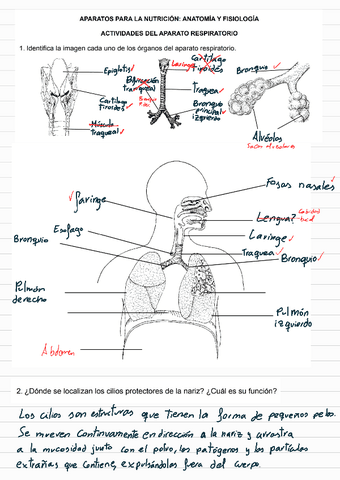 APARATOS PARA LA NUTRICIÓN: ANATOMÍA Y FISIOLOGÍA
ACTIVIDADES DEL APARATO RESPIRATORIO
1. Identifica la imagen cada uno de los órganos del aparato respiratorio.
Epiglotis
Bifurcación
traqueal
Cartílago
tiroides
Músculo
traqueal
Laringe
Cartílago
tiroides
traquea
Bronquio
principal
izquierdo
Bronquio
Alvéolos
Sacos alveolares
Faringe
Esofago
Bronquio
Pulmón
derecho
Abdomen
Fosas nasales
Lengua?
Cavidad
bucal
Laringe
Traquea
Bronquio
Pulmón
izquierdo
2. ¿Dónde se localizan los cilios protectores de la nariz? ¿Cuál es su función?
Los cilios son estructuras que tienen la forma de pequeños pelos.
Se mueven continuamente en dirección a la nariz y arrastra
a la mucosidad junto con el polvo, los patógenos y las partículas
extrañas que contiene, expulsándolos fuera del cuerpo.